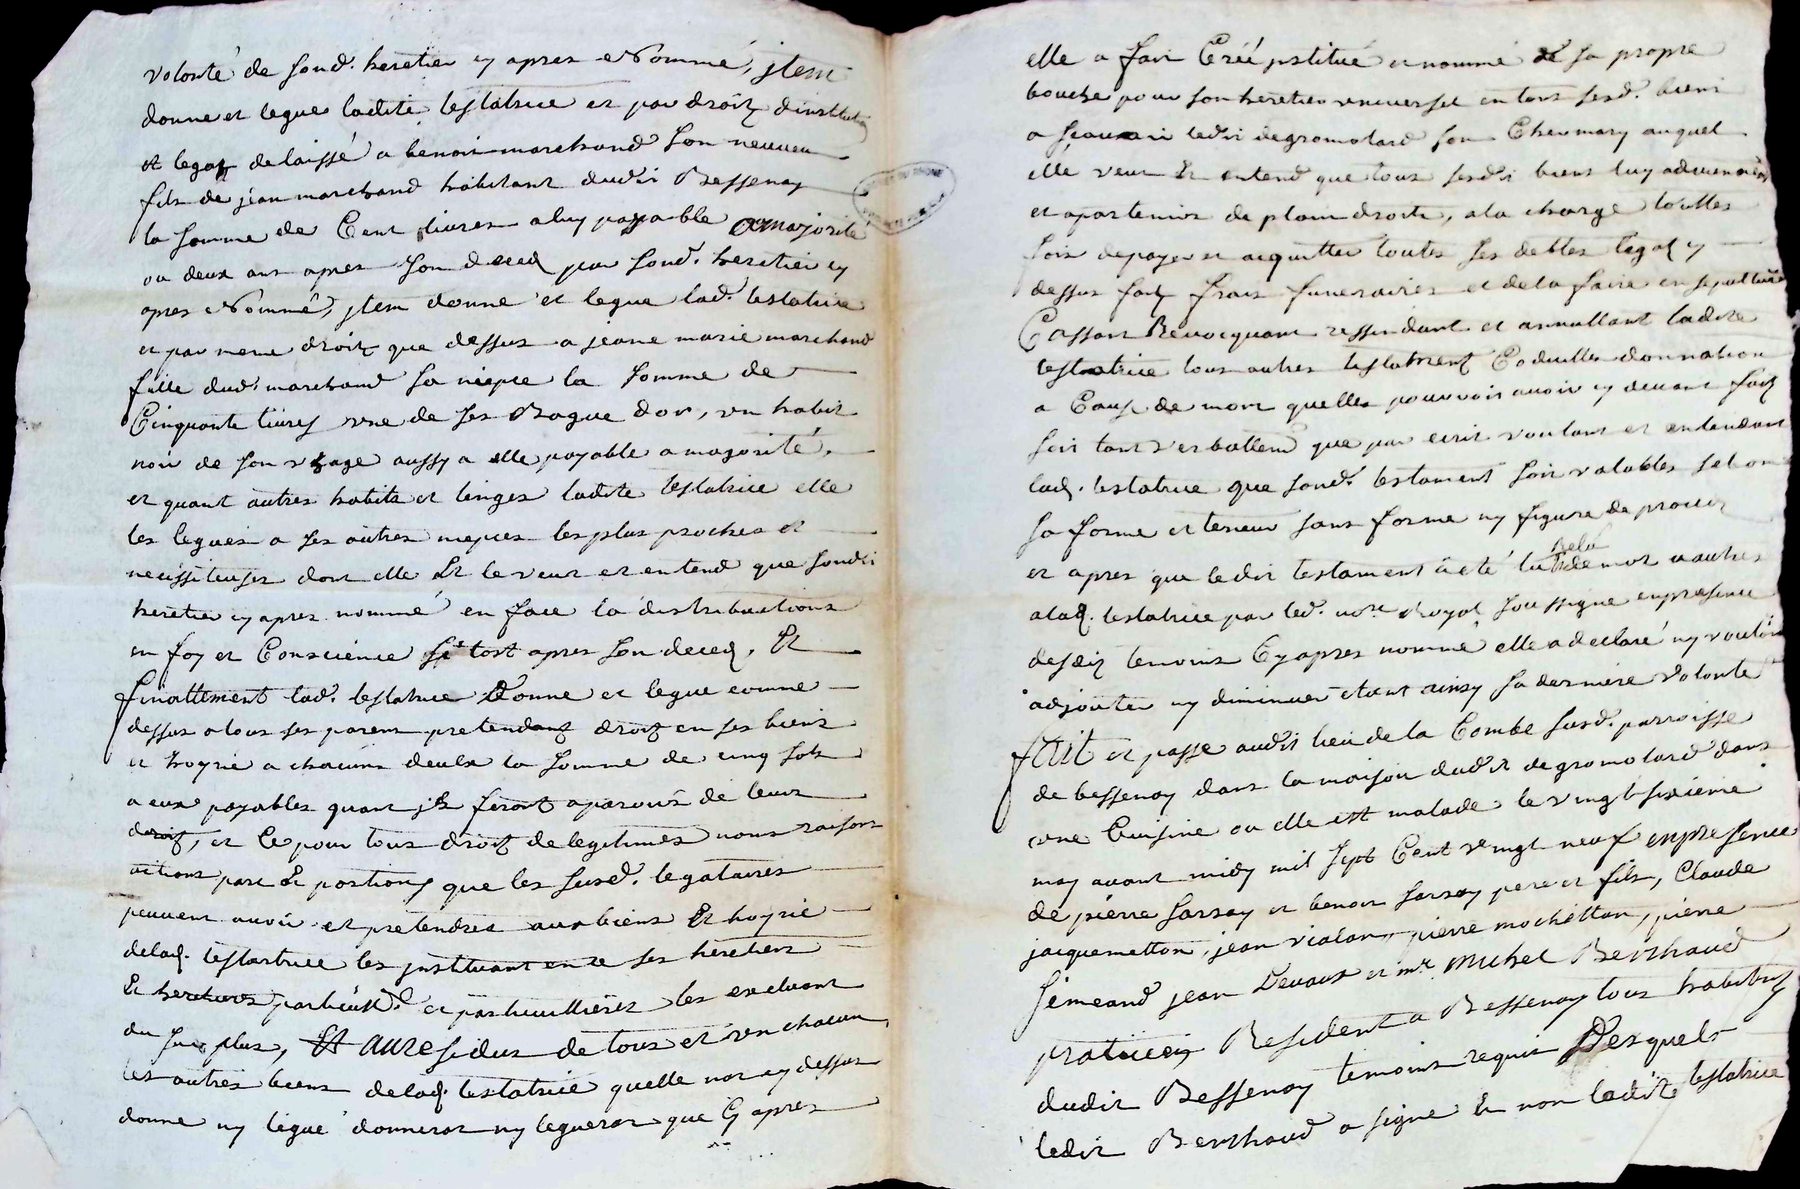 volonté de sond. heretier cy apres Nommé, jtem
donne et legue ladite testatrice et par droit d'institution
et legat delaissé a benoit marchand son neuveu
fils de jean marchand habitant dudit Bessenay
la somme de Cent livres a luy payable a majorité
ou deux ans apres son deced par sond. heretier cy
apres Nommé, jtem donne et legue lad. testatrice
et par meme droit que dessus a jeane marie marchand
fille dud. marchand sa niepce la somme de
Cinquante livres une de ses Bague d'or, un habit
noir de son usage aussy a elle payable a magorité,
et quant autres habits et linges ladite testatrice elle
les legues a ses autres niepces les plus proches et
necessiteuses dont elle Et le veut et entend que sondit
heretier cy apres nommé en face la distributions
en foy et Conscience si tost apres son deced, Et
finallement lad. testatrice Donne et legue comme
dessus a tous ses parens pretendant droit en ses biens
et hoyrie a chacuns deulx la somme de cinq sols
a eux payables quant jls feront aparoir de leurs
droit, et Ce pour tous droit de legitimes noms raisons
actions part Et portions que les susd. legataires
peuvent avoir et pretendres aux biens Et hoyrie
delad. testatrice les jnstituant en ce ses heretiers
Et heretieres particull. et particullieres les excluant
du surplus, Et au residus de tous et un chacun
les autres biens delad. testatrice quelle n'a cy dessus
donne ny legué donnerat ny leguerat que Cy apres
elle a fait Créé jnstitué et nommé de sa propre
bouche pour son heretier universel en tous sesd. biens
a ledit degromolard son Cher mary auquel
elle veut Et entend que tous sesdit biens luy adviennent
et apartenir de plain droit, a la charge touttes
fois de payer et acquitter toutes ses debtes legat cy
dessus fait frais funeraires et de la faire ensepulturer
Cassant Revocquant ressindant et annullant ladite
testatrice tous autres testament Codicilles donnation
a Cause de mort quelles pourroit avoir cy devant fait
soit tant verballem que par ecrit voulant et entendant
lad. testatrice que sond. testament soit valables selon
sa forme et teneur sans forme ny figure de procés
et apres que ledit testament a eté lu relu de mot a autres
a lad. testatrice par led. nore Royal soussigne en presence
desdit temoins Cy apres nomme elle a declaré ny vouloir
adjouter ny diminuer etant ainsy sa derniere volonté
fait et passe audit lieu de la Combe susd. parroisse
de bessenay dans la maison dudit degromolard dans
une Cuisine ou elle est malade le vingt sixieme
may avant midy mil sept Cent vingt neuf en presence
de pierre sarsay et benoit sarsay pere et fils, Claude
jacquemetton, jean vialon, pierre mochetton, pierre
Simeand jean Devaux et mr. Michel Berthaud
praticien Resident a Bessenay tous habitant
dudit Bessenay temoins requis Desquels
ledit Berthaud a signe Et non ladite testatrice